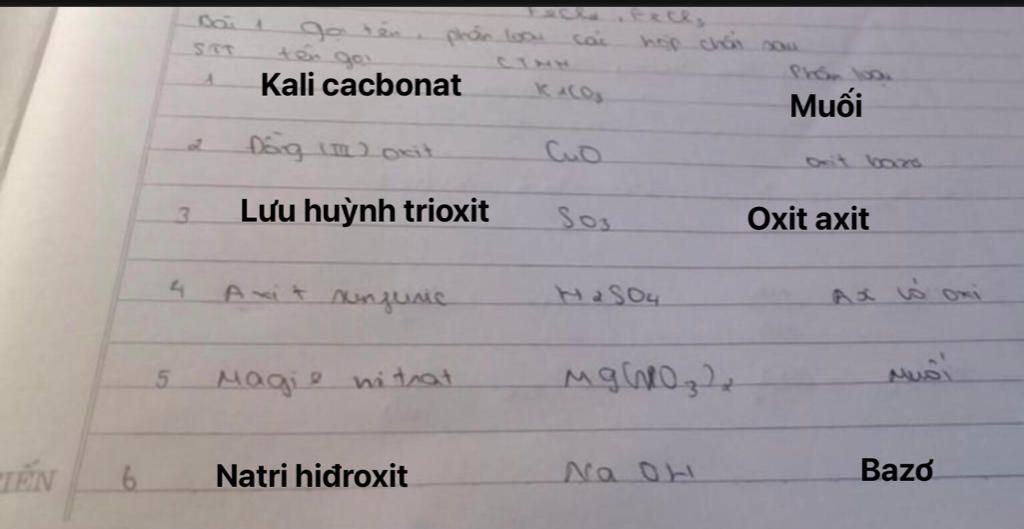 FeCl2, FeCl3
Bài 1 gọi tên, phân loại các hợp chất sau
STT tên gọi CTHH Phân loại
1 Kali cacbonat K2CO3 Muối
2 Đồng (III) oxit CuO oxit bazơ
3 Lưu huỳnh trioxit SO3 Oxit axit
4 Axit sunfuric H2SO4 Ax có oxi
5 Magie nitrat Mg(NO3)2 Muối
6 Natri hiđroxit NaOH Bazơ
IẾN